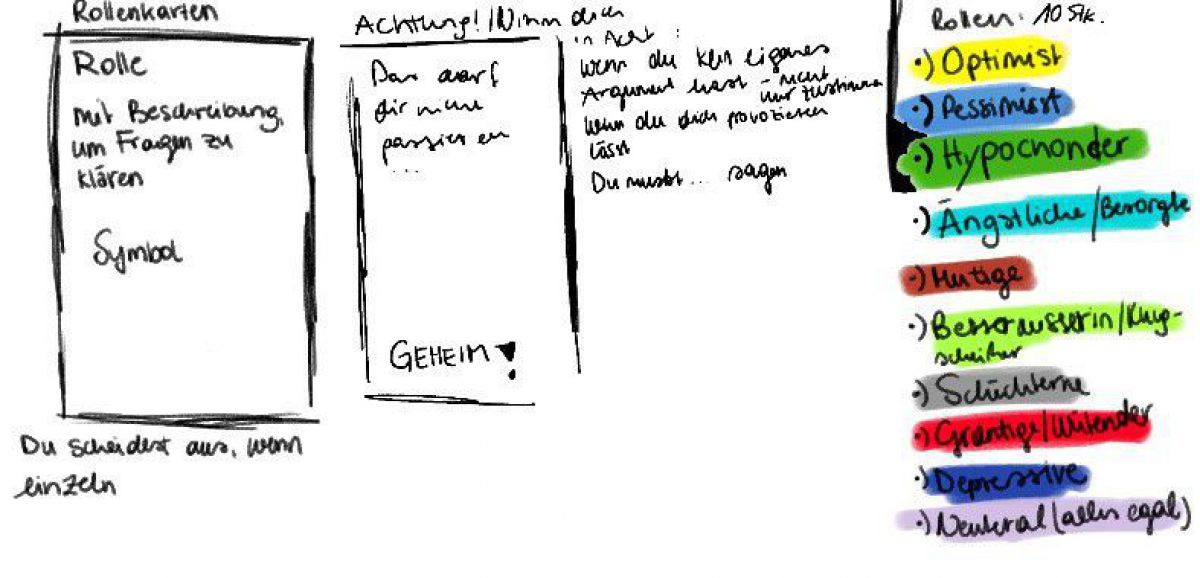 Rollenkarten
Rolle
mit Beschreibung,
um Fragen zu
klären
Symbol
Du scheidest aus, wenn
einzeln
Achtung! / Nimm dich
in Acht :
Das darf
dir nicht
passieren
...
GEHEIM!
wenn du kein eigenes
Argument hast - nicht
nur zustimmen
wenn du dich provozieren
lässt
Du musst... sagen
Rollen: 10 Stk.
•) Optimist
•) Pessimist
•) Hypochonder
•) Ängstliche/Besorgte
•) Mutige
•) Besserwisserin/Klug-
scheißer
•) Schüchterne
•) Grantige/Wütender
•) Depressive
•) Neutral (alles egal)